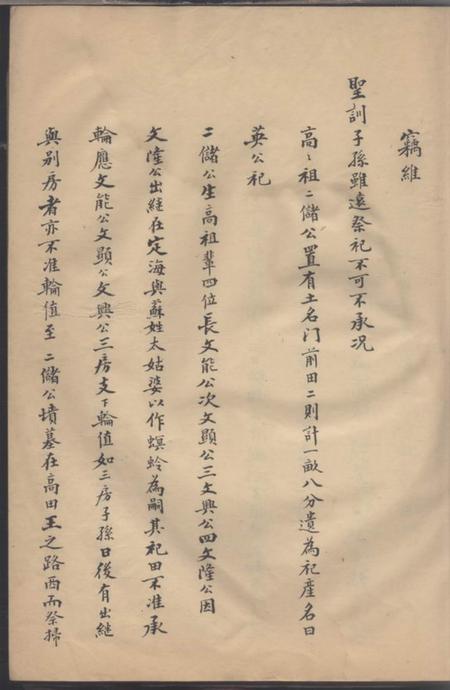 竊維
聖訓子孫雖遠祭祀不可不承况
高〻祖二儲公置有土名门前田二則計一畝八分遺為祀產名曰
英公祀
二儲公生高祖輩四位長文能公次文顯公三文興公四文隆公因
文隆公出継在定海與蘇姓太姑婆以作螟蛉為嗣其祀田不准承
輪應文能公文顯公文興公三房支下輪值如三房子孫日後有出継
與别房者亦不准輪值至二儲公墳墓在高田王之路西而祭掃